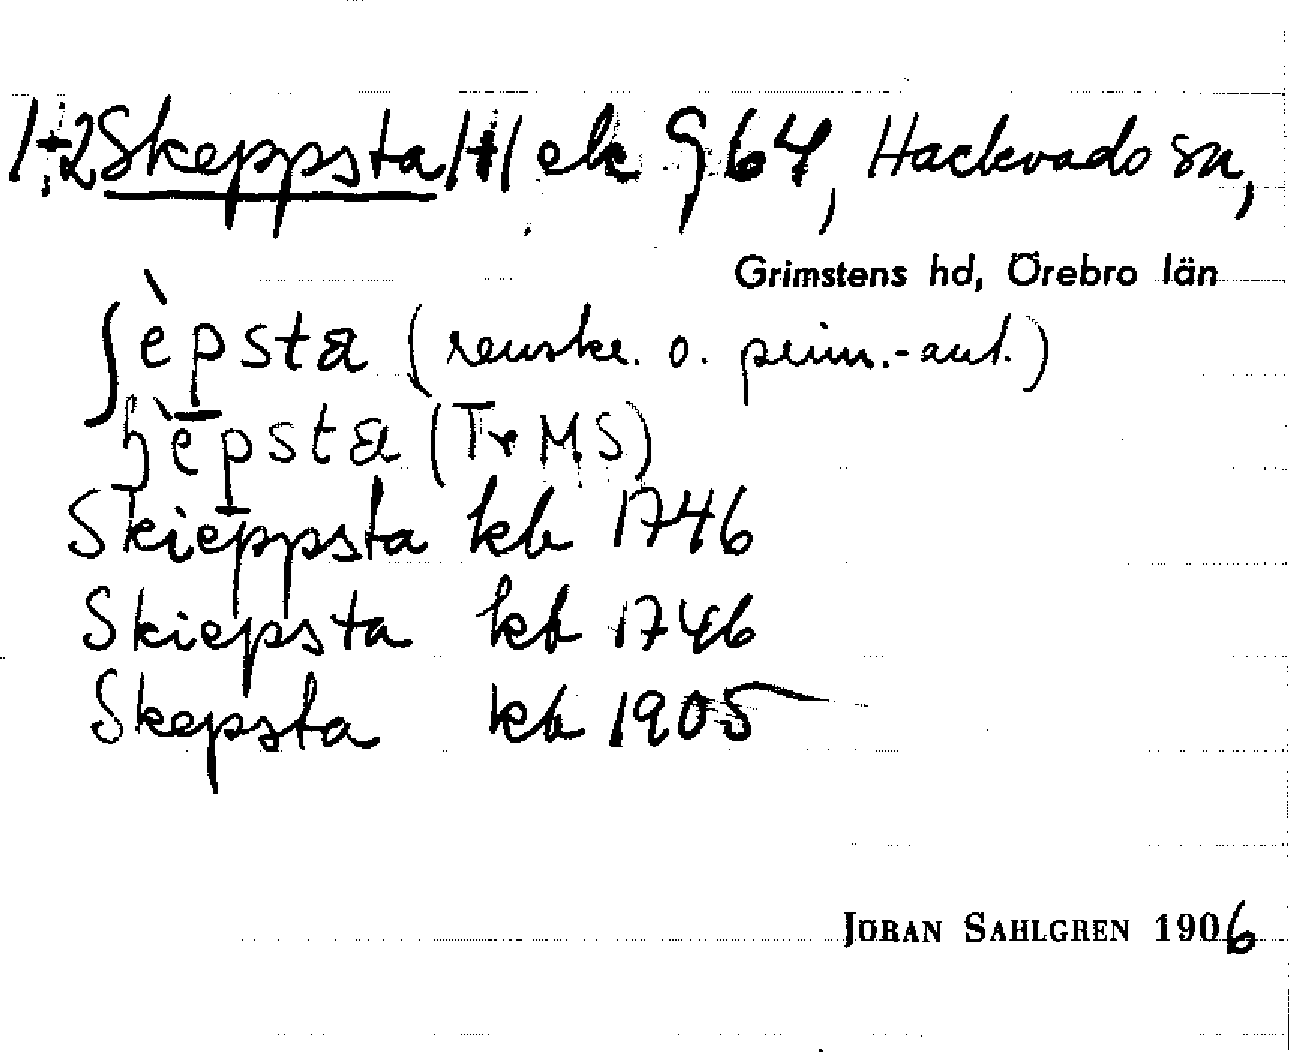 1+2 Skeppsta 1+1 ek 964, Hackvads sn,
Grimstens hd, Örebro län
ʃèpsta (renskr. o. prim.-ant.)
ɧèpsta (Tr MS)
Skieppsta kb 1746
Skiepsta kb 1746
Skepsta kb 1905
JÖRAN SAHLGREN 1906